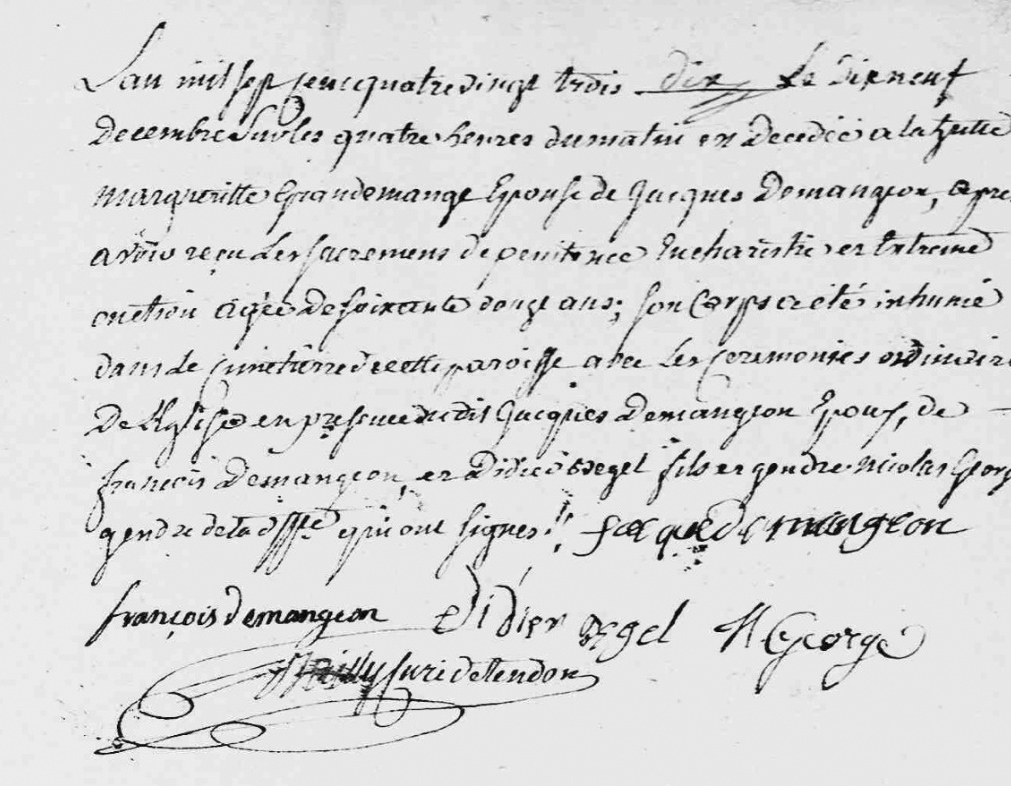 L'an mil sept cent quatre vingt trois dix Le Dixneuf
Decembre Sur les quatre heures du matin est Decedée a la
Margueritte Grandemange Epouse de Jacques Demangeon, apre
avoir reçu Les sacremens de penitence Eucharistie et Extreme
onction agée De soixante douze ans; son Corps a eté inhumé
dans Le Cimetierre de cette paroisse avec Les Ceremonies ordinaire
De L'Eglise en presence dudit Jacques Demangeon Epoux, de
françois Demangeon, et Didier fils et gendre Nicolas Georg
gendre de la qui ont signes. Jacque demangeon
françois demangeon Didier N George
Curé de tendon